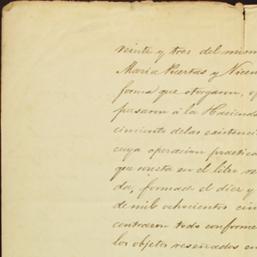 veinte y tres del mism
Maria Puertas y Vicen
forma que otorgaron, q
pasaron á la Hacienda
cimiento de las existenci
cuya operacion practica
que resulta en el libro
da, formado el dier y
de mil ochocientos cin
contraron todo conforme
los objetos reseñados en